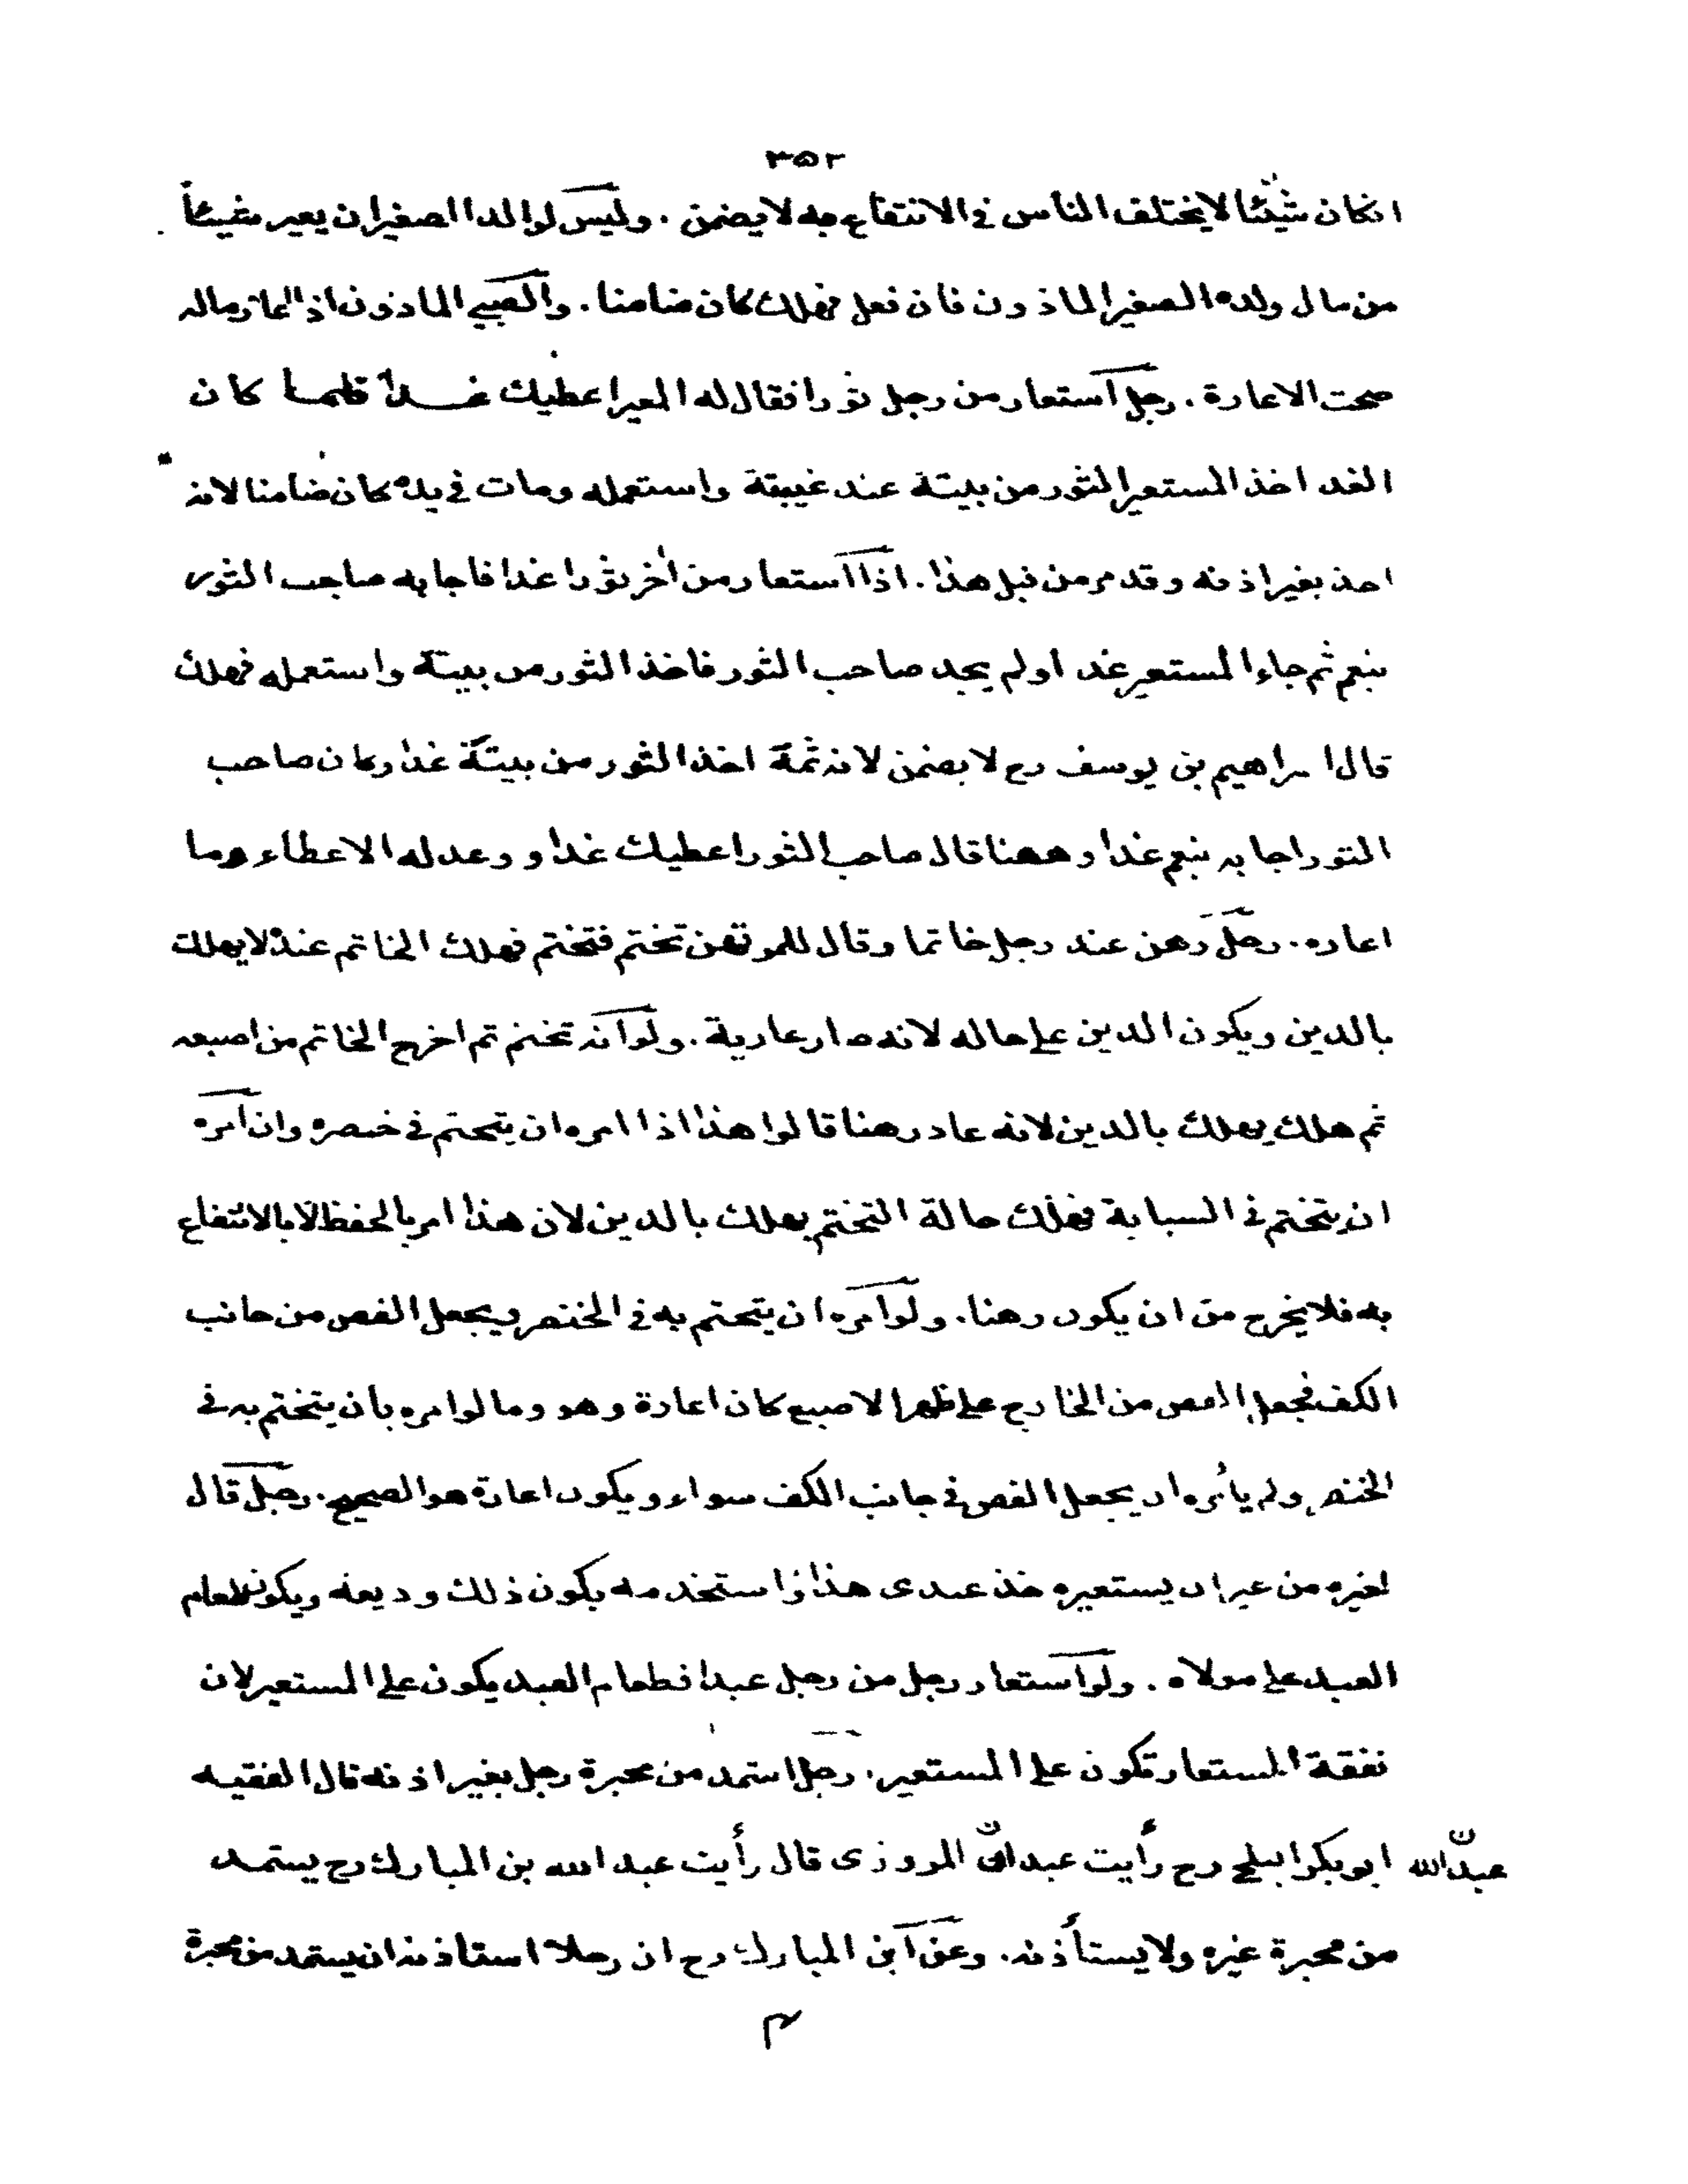 ٣٥٢
ان كان شيئا لا يختلف الناس في الانتفاع به لا يضمن . وليس لوالد الصغير ان يعير شيئاً
من مال ولده الصغير الماذون فان فعل فهلك كان ضامنا . والصبي الماذون اذا اعار ماله
صحت الاعارة . رجل استعار من رجل ثورا فقال له المعير اعطيك غداً فلما كان
الغد اخذ المستعير الثور من بيته عند غيبته واستعمله ومات في يده كان ضامنا لانه
اخذ بغير اذنه وقد مر من قبل هذا . اذا استعار من آخر ثورا غدا فاجابه صاحب الثور
بنعم ثم جاء المستعير غدا ولم يجد صاحب الثور فاخذ الثور من بيته واستعمله فهلك
قال ابراهيم بن يوسف رح لا يضمن لانه ثمة اخذ الثور من بيته غدا وكان صاحب
الثور اجابه بنعم غدا وههنا قال صاحب الثور اعطيك غدا و وعد له الاعطاء وما
اعاره . رجل رهن عند رجل خاتما وقال للمرتهن تختم فتختم فهلك الخاتم عنده لا يهلك
بالدين ويكون الدين على حاله لانه صار عارية . ولو انه تختم ثم اخرج الخاتم من اصبعه
ثم هلك يهلك بالدين لانه عاد رهنا قالوا هذا اذا امره ان يتختم في خنصره وان امره
ان يتختم في السبابة فهلك حالة التختم يهلك بالدين لان هذا امر بالحفظ لا بالانتفاع
به فلا يخرج من ان يكون رهنا . ولو امره ان يتختم به في الخنصر ويجعل الفص من جانب
الكف فجعل الفص من الخارج على ظهر الاصبع كان اعارة وهو وما لو امره بأن يتختم به في
الخنصر ولم يأمره ان يجعل الفص في جانب الكف سواء ويكون اعارة هو الصحيح . رجل قال
لغيره من غير ان يستعيره خذ عبدى هذا واستخدمه يكون ذلك وديعة ويكون طعام
العبد على مولاه . ولو استعار رجل من رجل عبدا فطعام العبد يكون على المستعير لان
نفقة المستعار تكون على المستعير . رجل استمد من محبرة رجل بغير اذنه قال الفقيه
ابو بكر البلخي رح رأيت عبدان المروزى قال رأيت عبد الله بن المبارك رح يستمد
عبد الله ن
من محبرة غيره ولا يستأذنه . وعن ابن المبارك رح ان رجلا استاذنه ان يستمد من محبرة